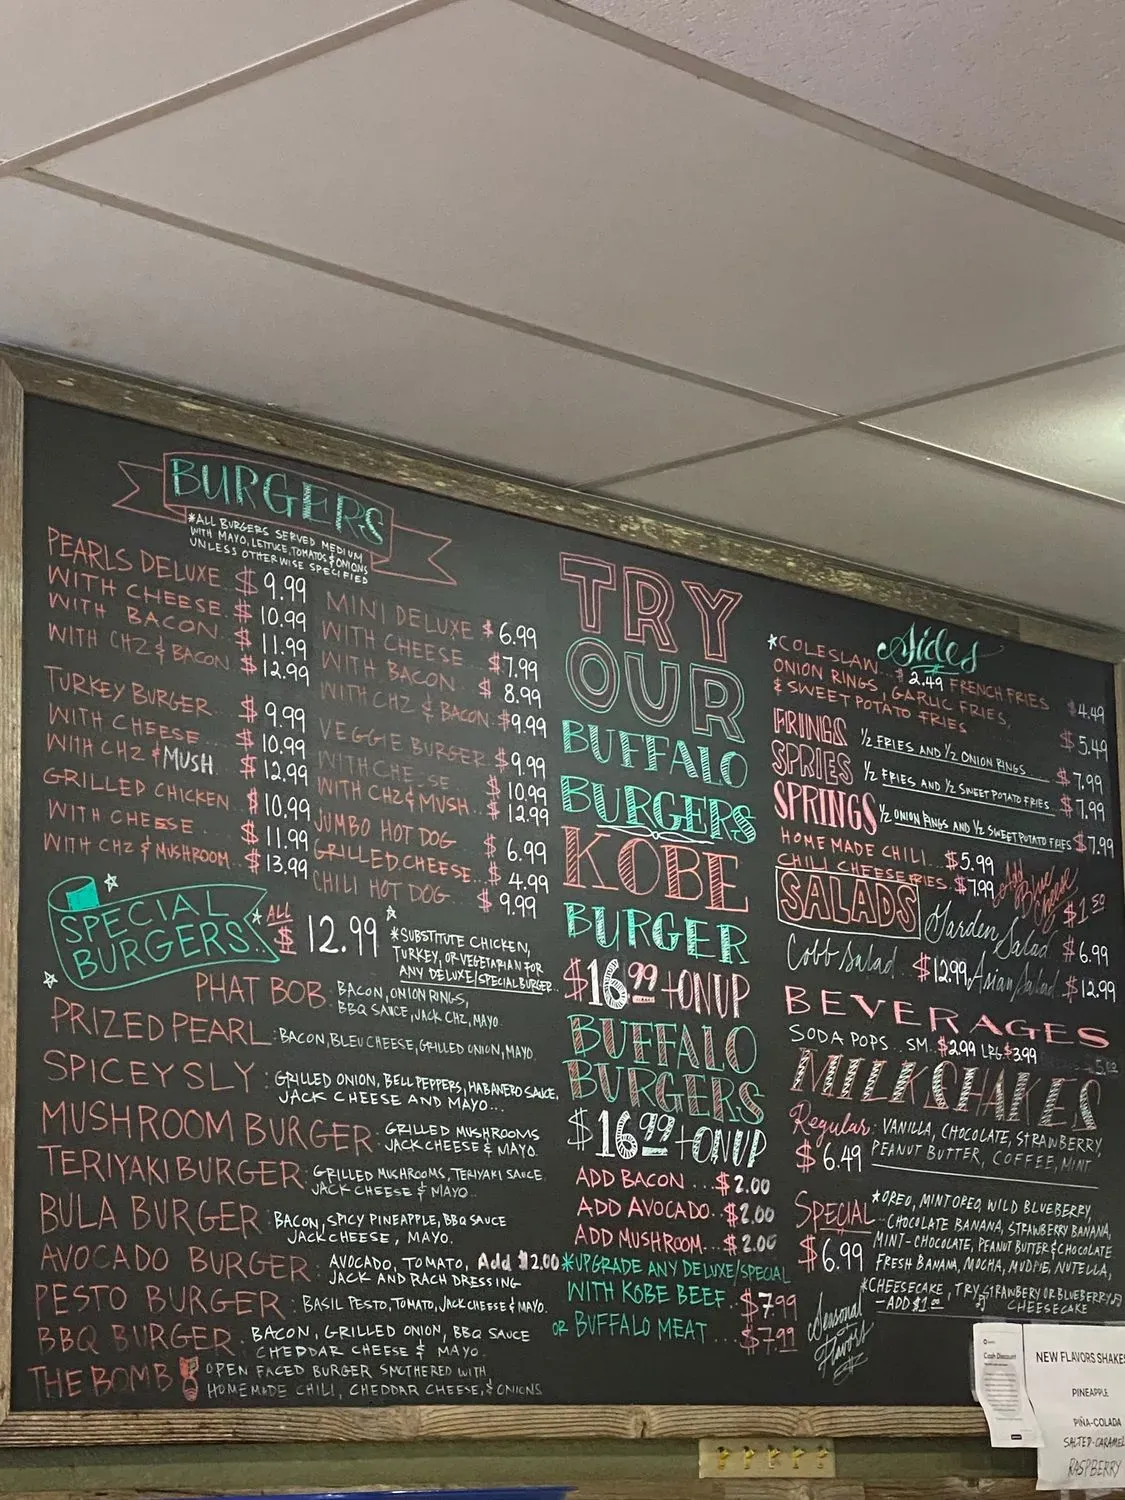 BURGERS
*ALL BURGERS SERVED MEDIUM
WITH MAYO, LETTUCE, TOMATOS & ONIONS
UNLESS OTHERWISE SPECIFIED
PEARLS DELUXE $9.99
WITH CHEESE. $10.99
WITH BACON.. $11.99
WITH CHZ & BACON.. $12.99
TURKEY BURGER $9.99
WITH CHEESE... $10.99
WITH CHZ & MUSH.. $12.99
GRILLED CHICKEN.. $10.99
WITH CHEESE... $11.99
WITH CHZ & MUSHROOM.. $13.99
MINI DELUXE $6.99
WITH CHEESE.. $7.99
WITH BACON.. $8.99
WITH CHZ & BACON.. $9.99
VEGGIE BURGER.. $9.99
WITH CHEESE $10.99
WITH CHZ & MUSH... $12.99
JUMBO HOT DOG.. $6.99
GRILLED CHEESE... $4.99
CHILI HOT DOG.. $9.99
SPECIAL
BURGERS.
*ALL $12.99
*SUBSTITUTE CHICKEN,
TURKEY, OR VEGETARIAN FOR
ANY DELUXE/SPECIAL BURGER..
PHAT BOB: BACON, ONION RINGS,
BBQ SAUCE, JACK CHZ, MAYO.
PRIZED PEARL: BACON, BLEU CHEESE, GRILLED ONION, MAYO.
SPICEY SLY: GRILLED ONION, BELL PEPPERS, HABANERO SAUCE,
JACK CHEESE AND MAYO...
MUSHROOM BURGER: GRILLED MUSHROOMS
JACK CHEESE & MAYO.
TERIYAKI BURGER: GRILLED MUSHROOMS, TERIYAKI SAUCE
JACK CHEESE & MAYO..
BULA BURGER: BACON, SPICY PINEAPPLE, BBQ SAUCE
JACK CHEESE, MAYO.
AVOCADO BURGER: AVOCADO, TOMATO, Add $2.00
JACK AND RACH DRESSING
PESTO BURGER: BASIL PESTO, TOMATO, JACK CHEESE & MAYO.
BBQ BURGER: BACON, GRILLED ONION, BBQ SAUCE
CHEDDAR CHEESE & MAYO.
THE BOMB OPEN FACED BURGER SMOTHERED WITH
HOMEMADE CHILI, CHEDDAR CHEESE, & ONIONS
TRY
OUR
BUFFALO
BURGERS
KOBE
BURGER
$16.99 + ON UP
BUFFALO
BURGERS
$16.99 + ON UP
ADD BACON... $2.00
ADD AVOCADO.. $2.00
ADD MUSHROOM... $2.00
*UPGRADE ANY DELUXE/SPECIAL
WITH KOBE BEEF.. $7.99
OR BUFFALO MEAT.... $7.99
Sides
*COLESLAW.. $2.49 FRENCH FRIES $4.49
ONION RINGS, GARLIC FRIES,
& SWEET POTATO FRIES $5.49
FRINGS 1/2 FRIES AND 1/2 ONION RINGS $7.99
SPRIES 1/2 FRIES AND 1/2 SWEET POTATO FRIES $7.99
SPRINGS 1/2 ONION RINGS AND 1/2 SWEET POTATO FRIES $7.99
HOMEMADE CHILI... $5.99
CHILI CHEESE FRIES.. $7.99
Add Blue Cheese $1.50
SALADS
Garden Salad $6.99
Cobb Salad $12.99 Asian Salad $12.99
BEVERAGES
SODA POPS... SM.. $2.99 LRG $3.99
MILKSHAKES
Regular: VANILLA, CHOCOLATE, STRAWBERRY,
$6.49 PEANUT BUTTER, COFFEE, MINT
SPECIAL *OREO, MINT OREO, WILD BLUEBERRY,
CHOCOLATE BANANA, STRAWBERRY BANANA,
$6.99 MINT-CHOCOLATE, PEANUT BUTTER & CHOCOLATE
FRESH BANANA, MOCHA, MUDPIE, NUTELLA,
*CHEESECAKE, TRY STRAWBERY OR BLUEBERRY
-ADD $1.00 CHEESECAKE
Seasonal
Flavors
Cash Discount
NEW FLAVORS SHAKES
PINEAPPLE
PIÑA-COLADA
SALTED-CARAMEL
RASPBERRY